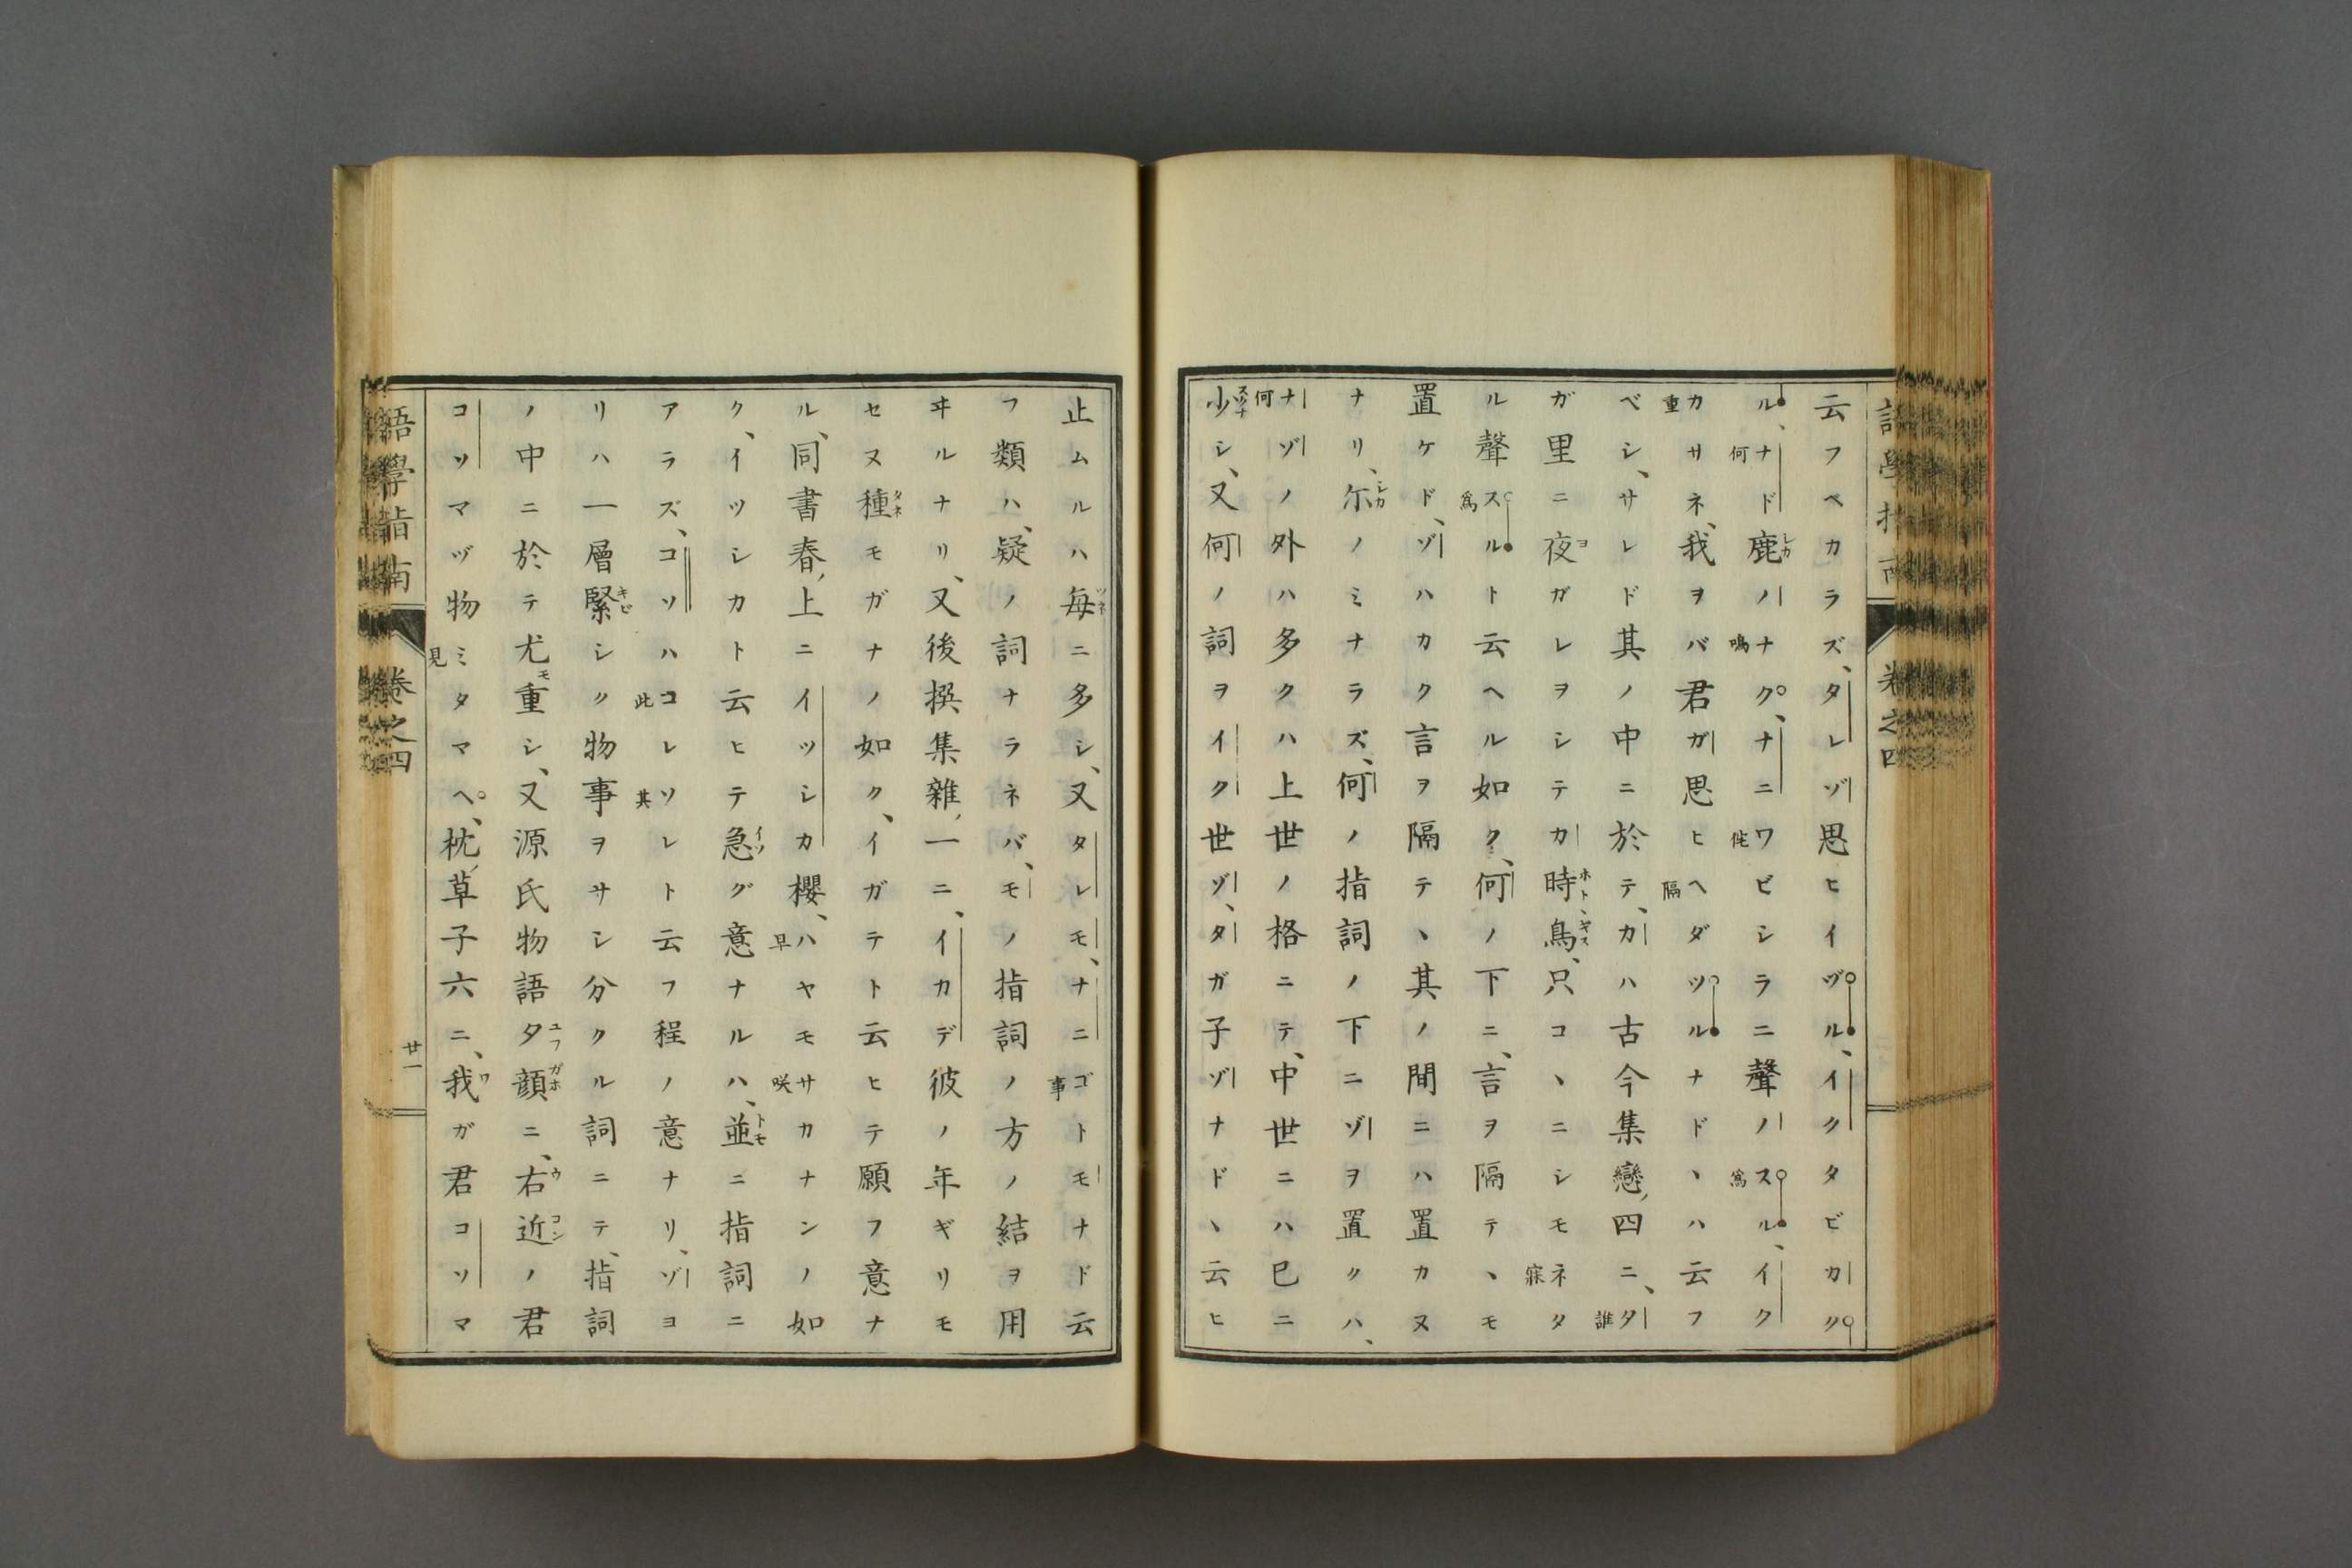 云フベカラズ、タレゾ思ヒイヅル、イクタビカク
ル、ナド鹿ノナク、ナニワビシラニ聲ノスル、イク
カサネ、我ヲバ君ガ思ヒヘダツルナドヽハ云フ
ベシ、サレド其ノ中ニ於テ、カハ古今集戀四ニ、タ
ガ里ニ夜ガレヲシテカ時鳥、只コヽニシモネタ
ル聲スルト云ヘル如ク、何ノ下ニ、言ヲ隔テヽモ
置ケド、ゾハカク言ヲ隔テヽ其ノ間ニハ置カヌ
ナリ、尓ノミナラズ、何ノ指詞ノ下ニゾヲ置クハ、
ナゾノ外ハ多クハ上世ノ格ニテ、中世ニハ已ニ
少シ、又何ノ詞ヲイク世ゾ、タガ子ゾナドヽ云ヒ
止ムルハ毎ニ多シ、又タレモ、ナニゴトモナド云
フ類ハ、疑ノ詞ナラネバ、モノ指詞ノ方ノ結ヲ用
ヰルナリ、又後撰集雜一ニ、イカデ彼ノ年ギリモ
セヌ種モガナノ如ク、イガテト云ヒテ願フ意ナ
ル、同書春上ニイツシカ櫻、ハヤモサカナンノ如
ク、イツシカト云ヒテ急グ意ナルハ、並ニ指詞ニ
アラズ、コソハコレソレト云フ程ノ意ナリ、ゾヨ
リハ一層緊シク物事ヲサシ分クル詞ニテ、指詞
ノ中ニ於テ尤重シ、又源氏物語夕顔ニ、右近ノ君
コソマヅ物ミタマヘ、枕草子六ニ、我ガ君コソマ
語學指南 卷之四 廿一